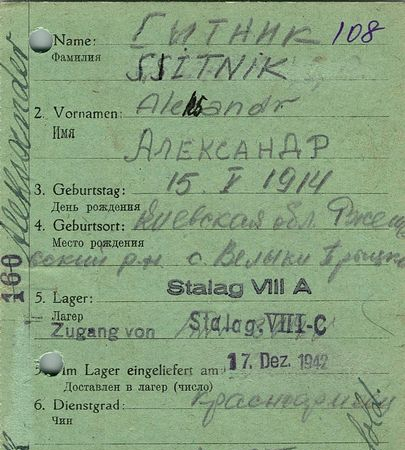 Name: СЫТНИК 108
Фамилия SSITNIK
2. Vornamen: Aleksandr
Имя
АЛЕКСАНДР
3. Geburtstag: 15. V 1914
День рождения
4. Geburtsort: Киевская обл. Ржище
Место рождения
вский р-н с. Велыки Прицки
Stalag VIII A
5. Lager:
Лагер
Zugang von Stalag-VIII-C
Im Lager eingeliefert am: 17. Dez. 1942
Доставлен в лагер (число)
6. Dienstgrad: Красноармеец
Чин
Alexsander
160